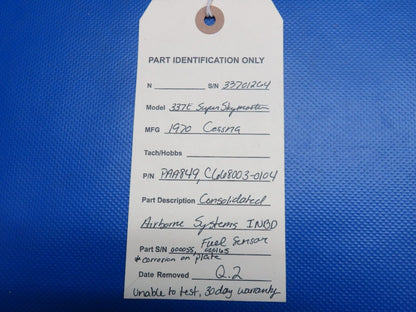 PART IDENTIFICATION ONLY
N S/N 33701264
Model 337E Super Skymaster
MFG 1970 Cessna
Tach/Hobbs
P/N PAA849, C668003-0104
Part Description Consolidated
Airborne Systems INBD
Fuel Sensor
Part S/N 000055,
* Corrosion on plate
Date Removed Q.2
Unable to test, 30 day warranty